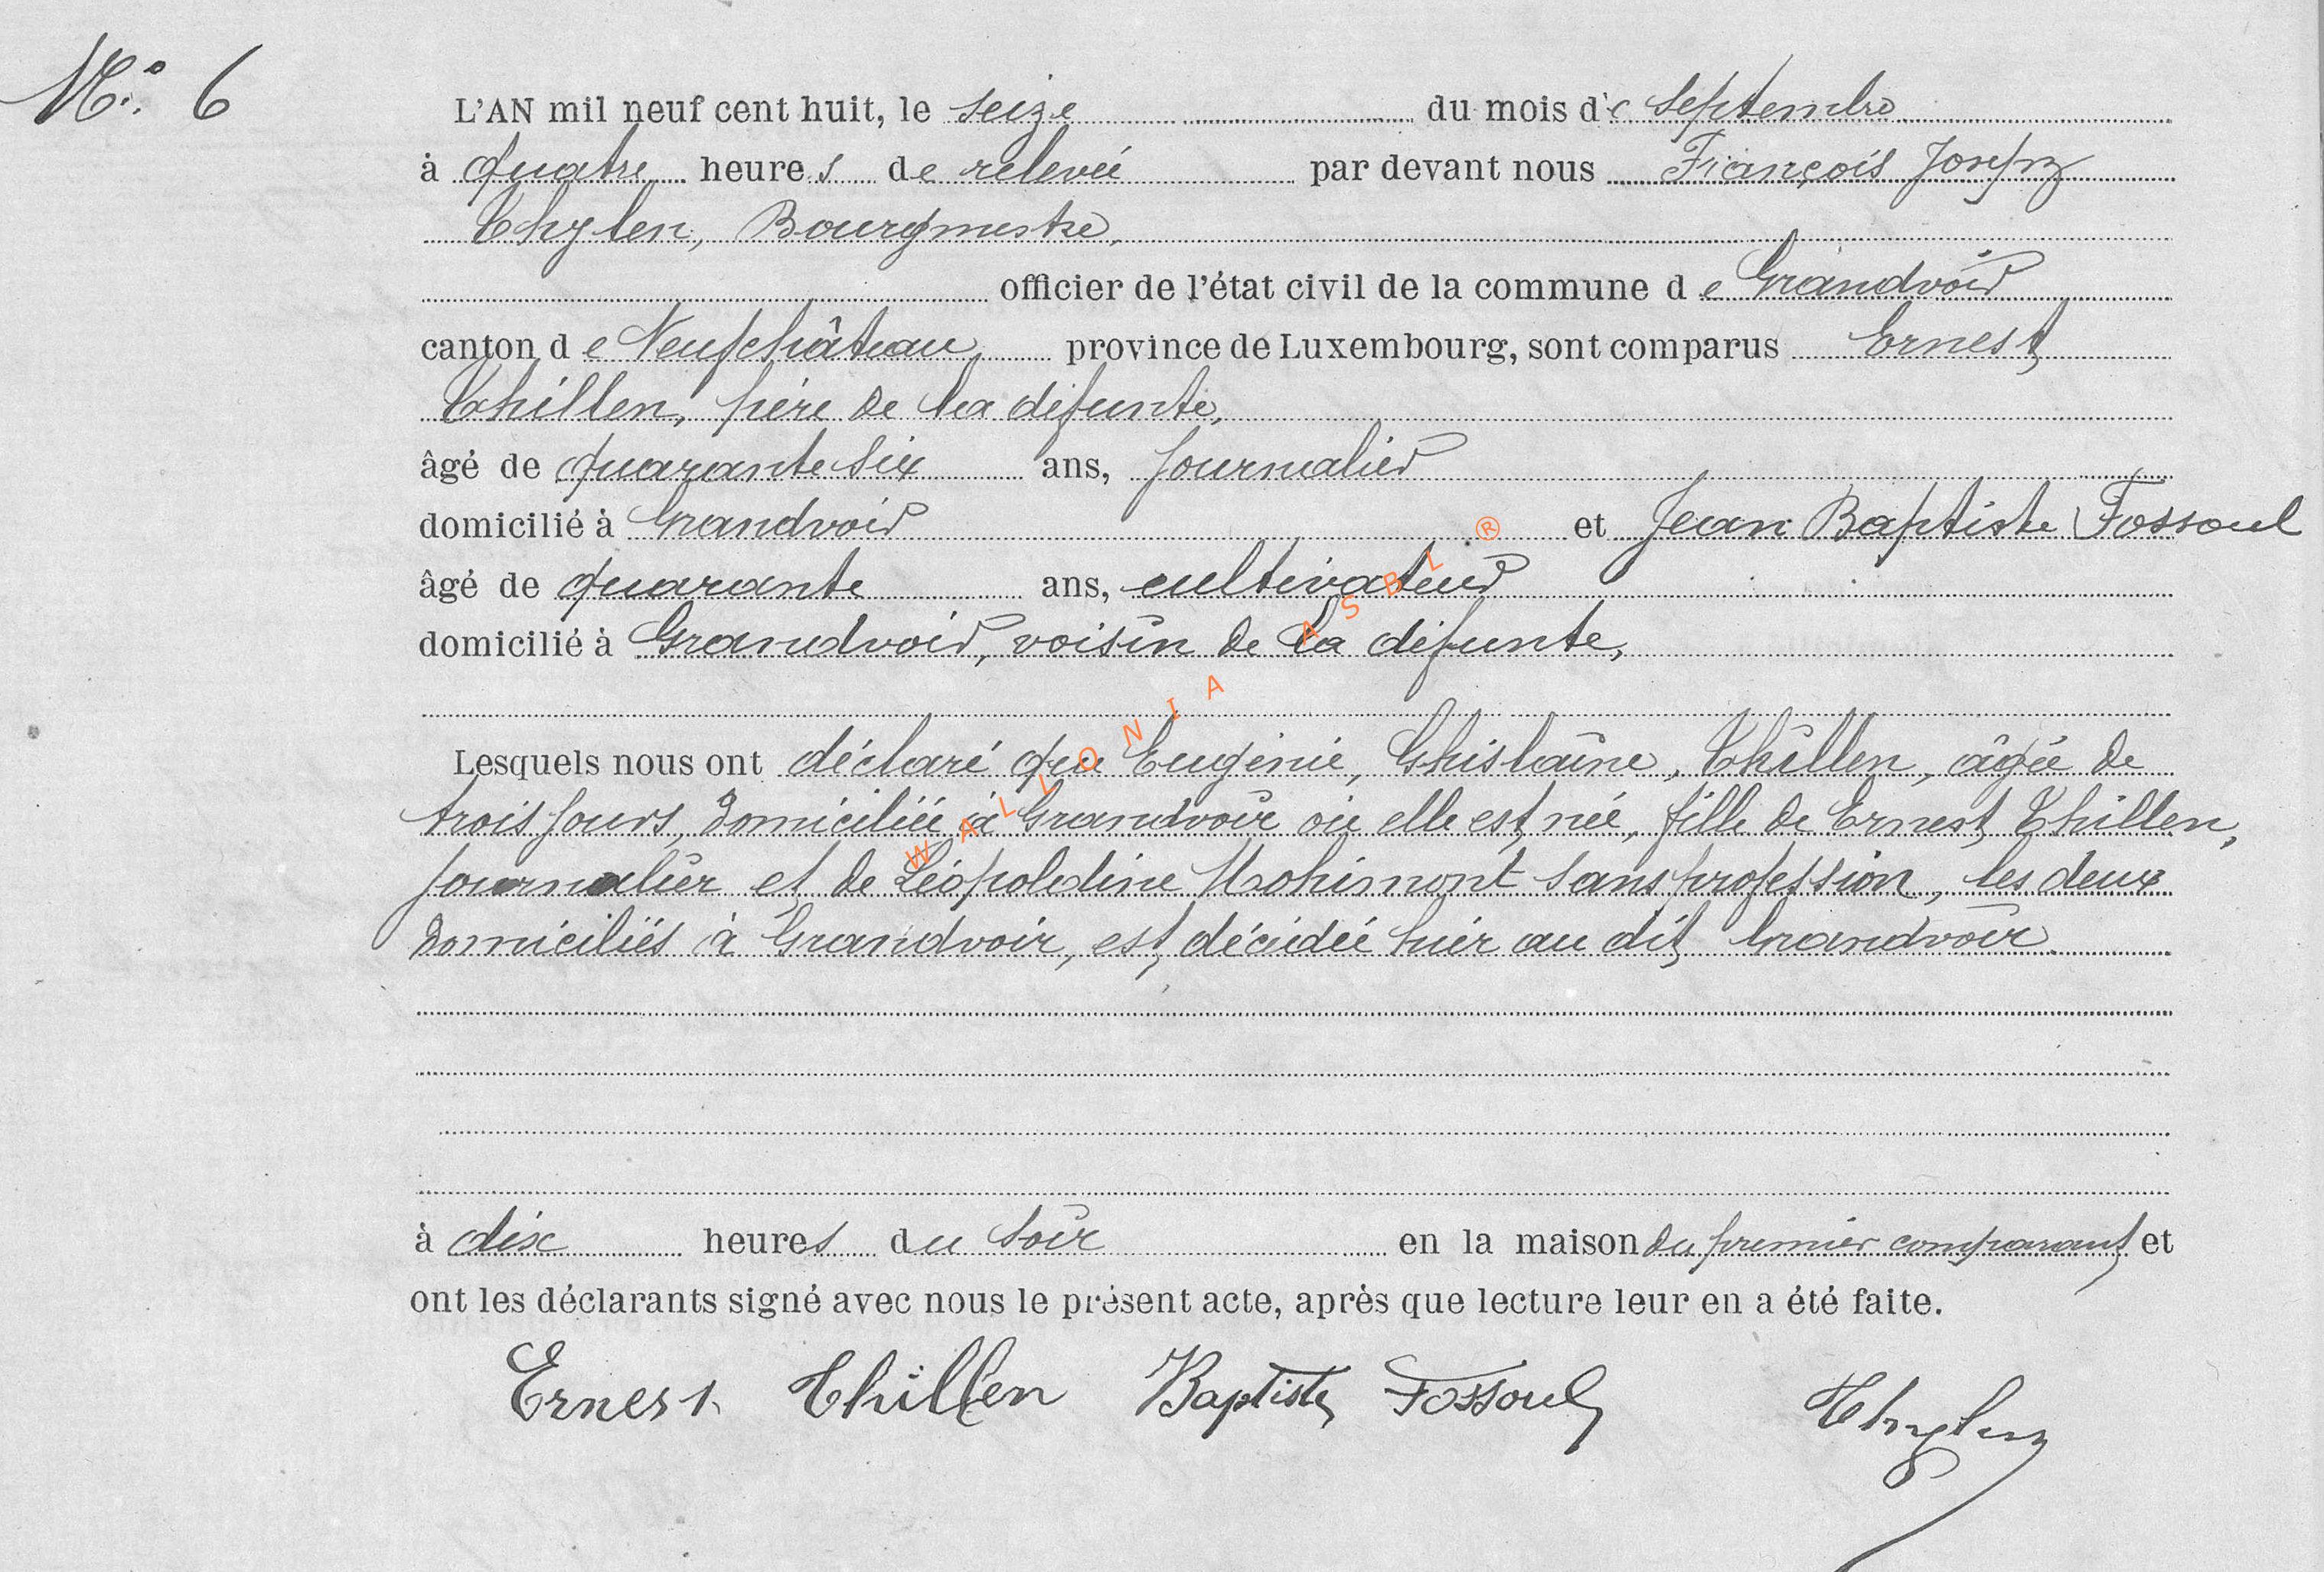 N° 6
L'AN mil neuf cent huit, le seize du mois de Septembre
à quatre heures de relevée par devant nous François Joseph
Thylen, Bourgmestre,
officier de l'état civil de la commune de Grandvoir
canton de Neufchâteau, province de Luxembourg, sont comparus Ernest
Thillen, père de la défunte,
âgé de quarante six ans, journalier
domicilié à Grandvoir et Jean Baptiste Fossoul
âgé de quarante ans, cultivateur
domicilié à Grandvoir, voisin de la défunte,
Lesquels nous ont déclaré que Eugénie, Ghislaine, Thillen, âgée de
trois jours, domiciliée à Grandvoir où elle est née, fille de Ernest Thillen,
journalier et de Léopoldine Mohimont sans profession, les deux
domiciliés à Grandvoir, est décédée hier au dit Grandvoir
à dix heures du soir en la maison du premier comparant et
ont les déclarants signé avec nous le présent acte, après que lecture leur en a été faite.
Ernest Thillen Baptiste Fossoul Thylen
WALLONIA ASBL ®